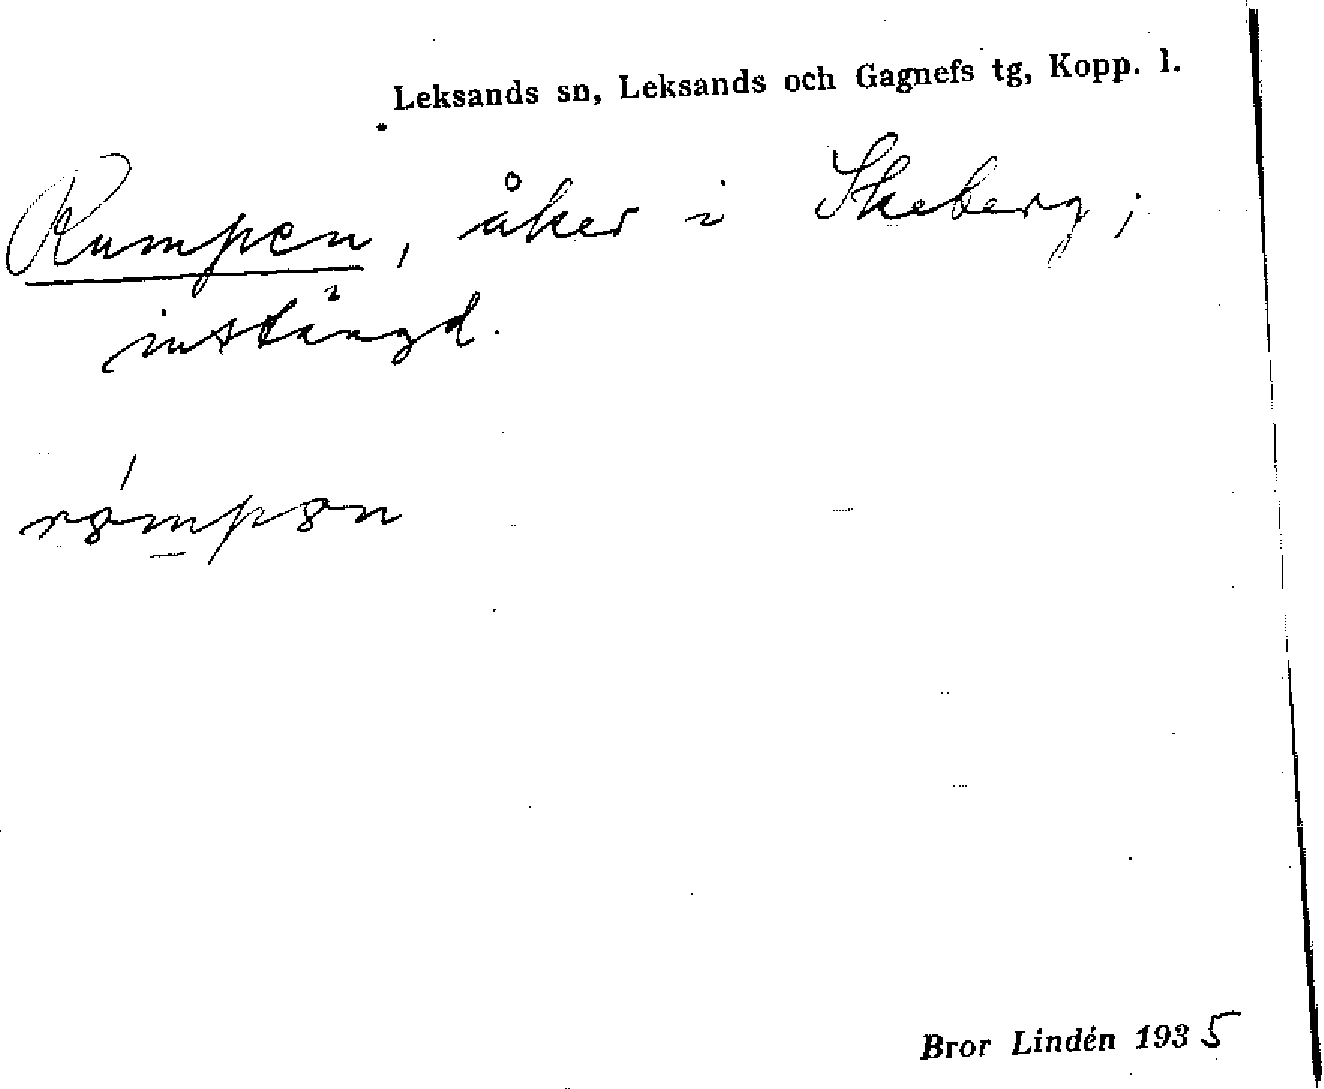 Leksands sn, Leksands och Gagnefs tg, Kopp. l.
Rumpen, åker i Skeberg;
instängd.
rømpøn
Bror Lindén 1935